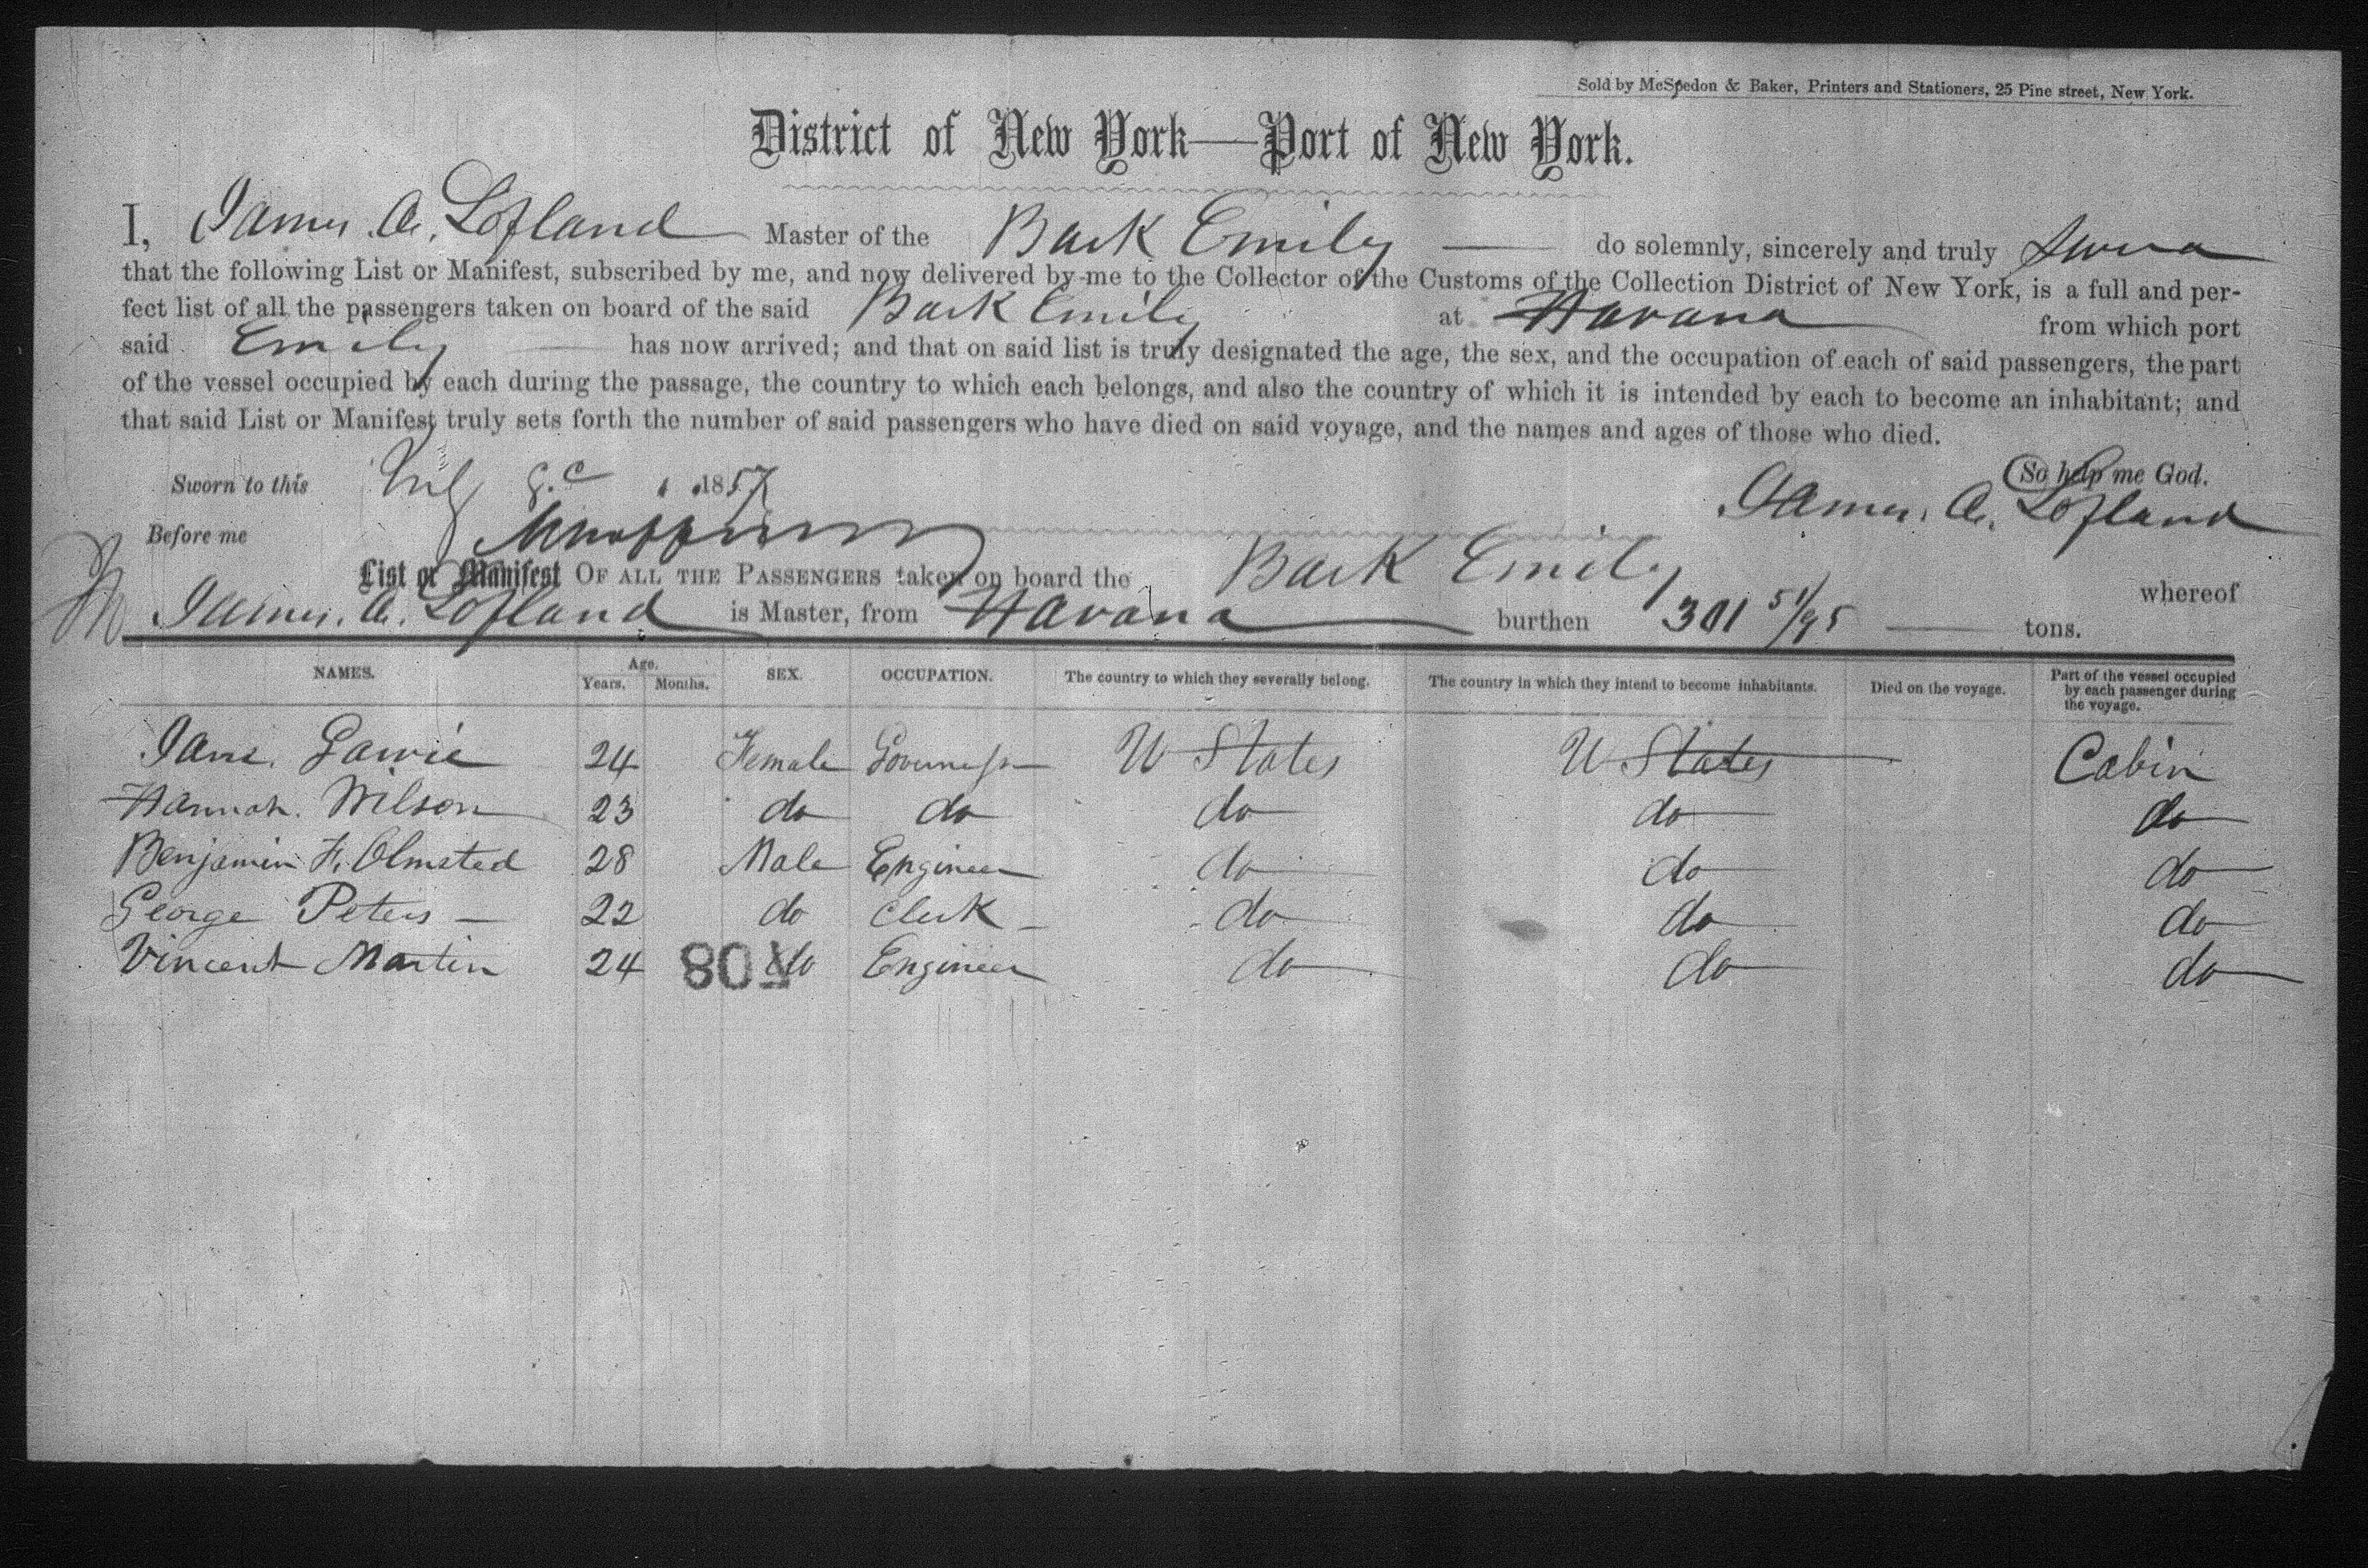 Sold by McSpedon & Baker, Printers and Stationers, 25 Pine street, New York.
District of New York—Port of New York.
I, James A. Lofland Master of the Bark Emily do solemnly, sincerely and truly
that the following List or Manifest, subscribed by me, and now delivered by me to the Collector of the Customs of the Collection District of New York, is a full and per-
fect list of all the passengers taken on board of the said Bark Emily at Havana from which port
said Emily has now arrived; and that on said list is truly designated the age, the sex, and the occupation of each of said passengers, the part
of the vessel occupied by each during the passage, the country to which each belongs, and also the country of which it is intended by each to become an inhabitant; and
that said List or Manifest truly sets forth the number of said passengers who have died on said voyage, and the names and ages of those who died.
So help me God.
Sworn to this 1857 James. A. Lofland
Before me
List or Manifest OF ALL THE PASSENGERS taken on board the Bark Emily whereof
James. A. Lofland is Master, from Havana burthen 301 51/95 tons.
NAMES. Age. Years. Months. SEX. OCCUPATION. The country to which they severally belong. The country in which they intend to become inhabitants. Died on the voyage. Part of the vessel occupied by each passenger during the voyage.
Jane. 24 Female Governess U States U States Cabin
Hannah. Wilson 23 do do do do do
Benjamin F. Olmsted 28 Male Engineer do do do
George Peters 22 do Clerk do do do
Vincent Martin 24 do Engineer do do do
508